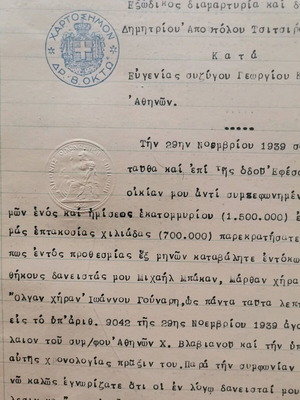 ΧΑΡΤΟΣΗΜΟΝ
ΔΡ. 8 ΟΚΤΩ
Εξώδικος διαμαρτυρία και δ
Δημητρίου Αποστόλου Τσιτσιρ
Κ α τ ά
Ευγενίας συζύγου Γεωργίου
Ἀθηνῶν.
Τήν 29ην Νοεμβρίου 1939 σ
ταῦθα καί ἐπί τῆς ὁδοῦ Ἐφέσο
οἰκίαν μου ἀντί συμπεφωνημέν
μῶν ἑνός καί ἡμίσεος ἑκατομμυρίου (1.500.000) ἐ
μάς ἑπτακοσίας χιλιάδας (700.000) παρεκρατήσατε
πως ἐντός προθεσμίας ἕξ μηνῶν καταβάλητε ἐντόκω
θήκους δανειστάς μου Μιχαήλ Μπάκαν, Μάρθαν χήρα
Ὄλγαν χήραν Ἰωάννου Γούναρη, ὡς πάντα ταῦτα λεπτ
εἰς τό ὑπ' ἀριθ. 9042 τῆς 29ης Νοεμβρίου 1939 ἀγο
λαιον τοῦ συμ/φου Ἀθηνῶν Χ. Βλαβιανοῦ καί τήν ὑπ
αὐτῆς χρονολογίας πρᾶξιν του. Παρά τήν συμφωνίαν
νῶ καλῶς ἐγνωρίζατε ὅτι οἱ ἐν λόγῳ δανεισταί μου